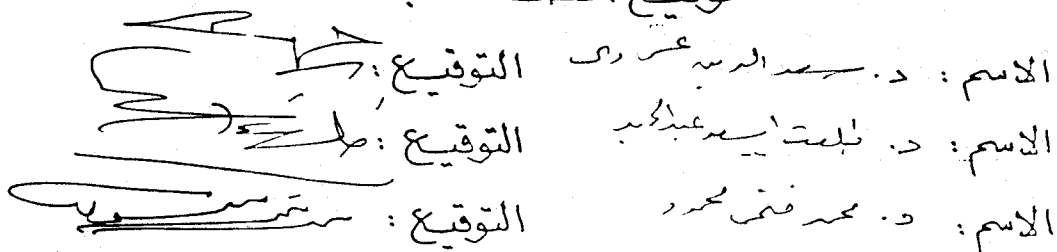 توقيع
الاسم: د. سعد الدين عشماوى التوقيع:
الاسم: د. طلعت اسعد عبدالحميد التوقيع: طلعت
الاسم: د. محمد فتحى محمود التوقيع: